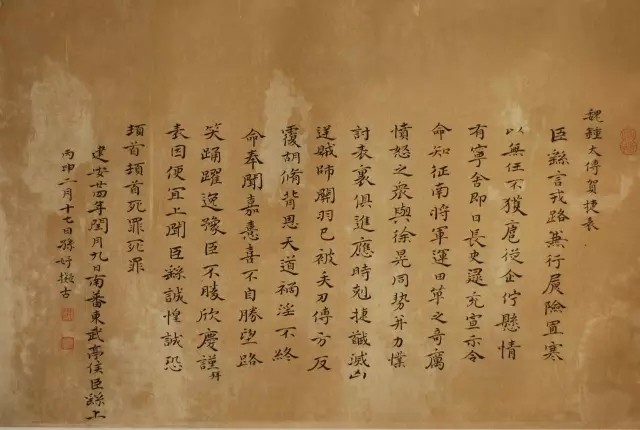 魏鍾太傅賀捷表
臣繇言戎路兼行履險冒寒
以無任不獲扈從企佇懸情
有寧舍即日長史逯充宣示令
命知征南將軍運田單之奇厲
憤怒之衆與徐晃同勢并力撲
討表裏俱進應時剋捷馘滅凶
逆賊帥關羽已被矢刃傅方反
覆胡脩背恩天道禍淫不終
命奉聞嘉憙喜不自勝望路
笑踊躍逸豫臣不勝欣慶謹拜
表因便宜上聞臣繇誠惶誠恐
頓首頓首死罪死罪
建安廿四年閏月九日南蕃東武亭侯臣繇上
丙申二月十七日孫擬古